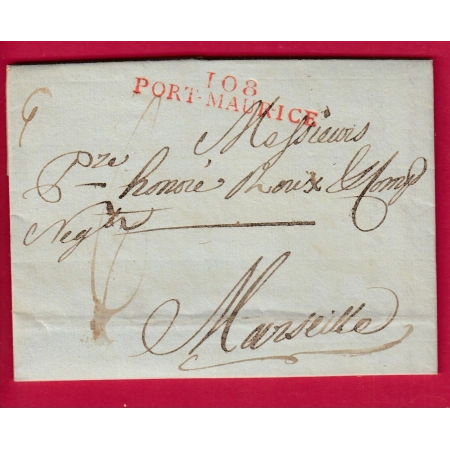 108
PORT-MAURICE
Messieurs
Pre honoré Roux & Comp
Negts
Marseille